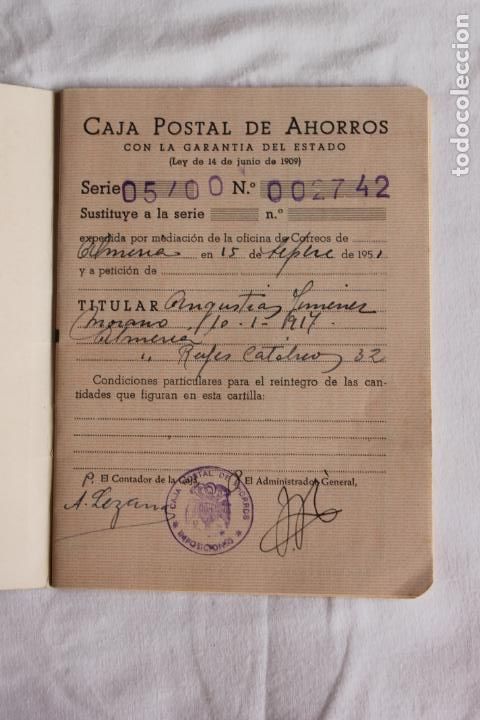 CAJA POSTAL DE AHORROS
CON LA GARANTIA DEL ESTADO
(Ley de 14 de junio de 1909)
Serie 05/00 N.º 002742
Sustituye a la serie n.º
expedida por mediación de la oficina de Correos de
Almeria en 15 de Sepbre de 1951
y a petición de
TITULAR Angustias Jimenez
Moreno, 10-1-1917.
Almeria
" Reyes Católicos 32
Condiciones particulares para el reintegro de las can-
tidades que figuran en esta cartilla:
P. El Contador de la Caja El Administrador General,
A. Lezana
CAJA POSTAL DE AHORROS
IMPOSICIONES
todocoleccion